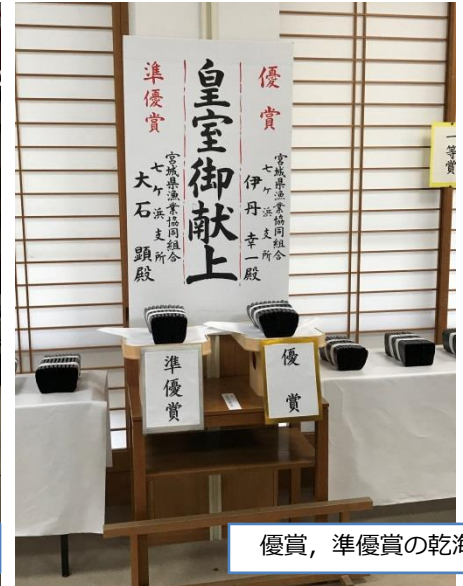 優賞
宮城県漁業協同組合
七ヶ浜支所
伊丹幸一殿
皇室御献上
準優賞
宮城県漁業協同組合
七ヶ浜支所
大石顕殿
一等賞
優賞
準優賞
優賞，準優賞の乾海